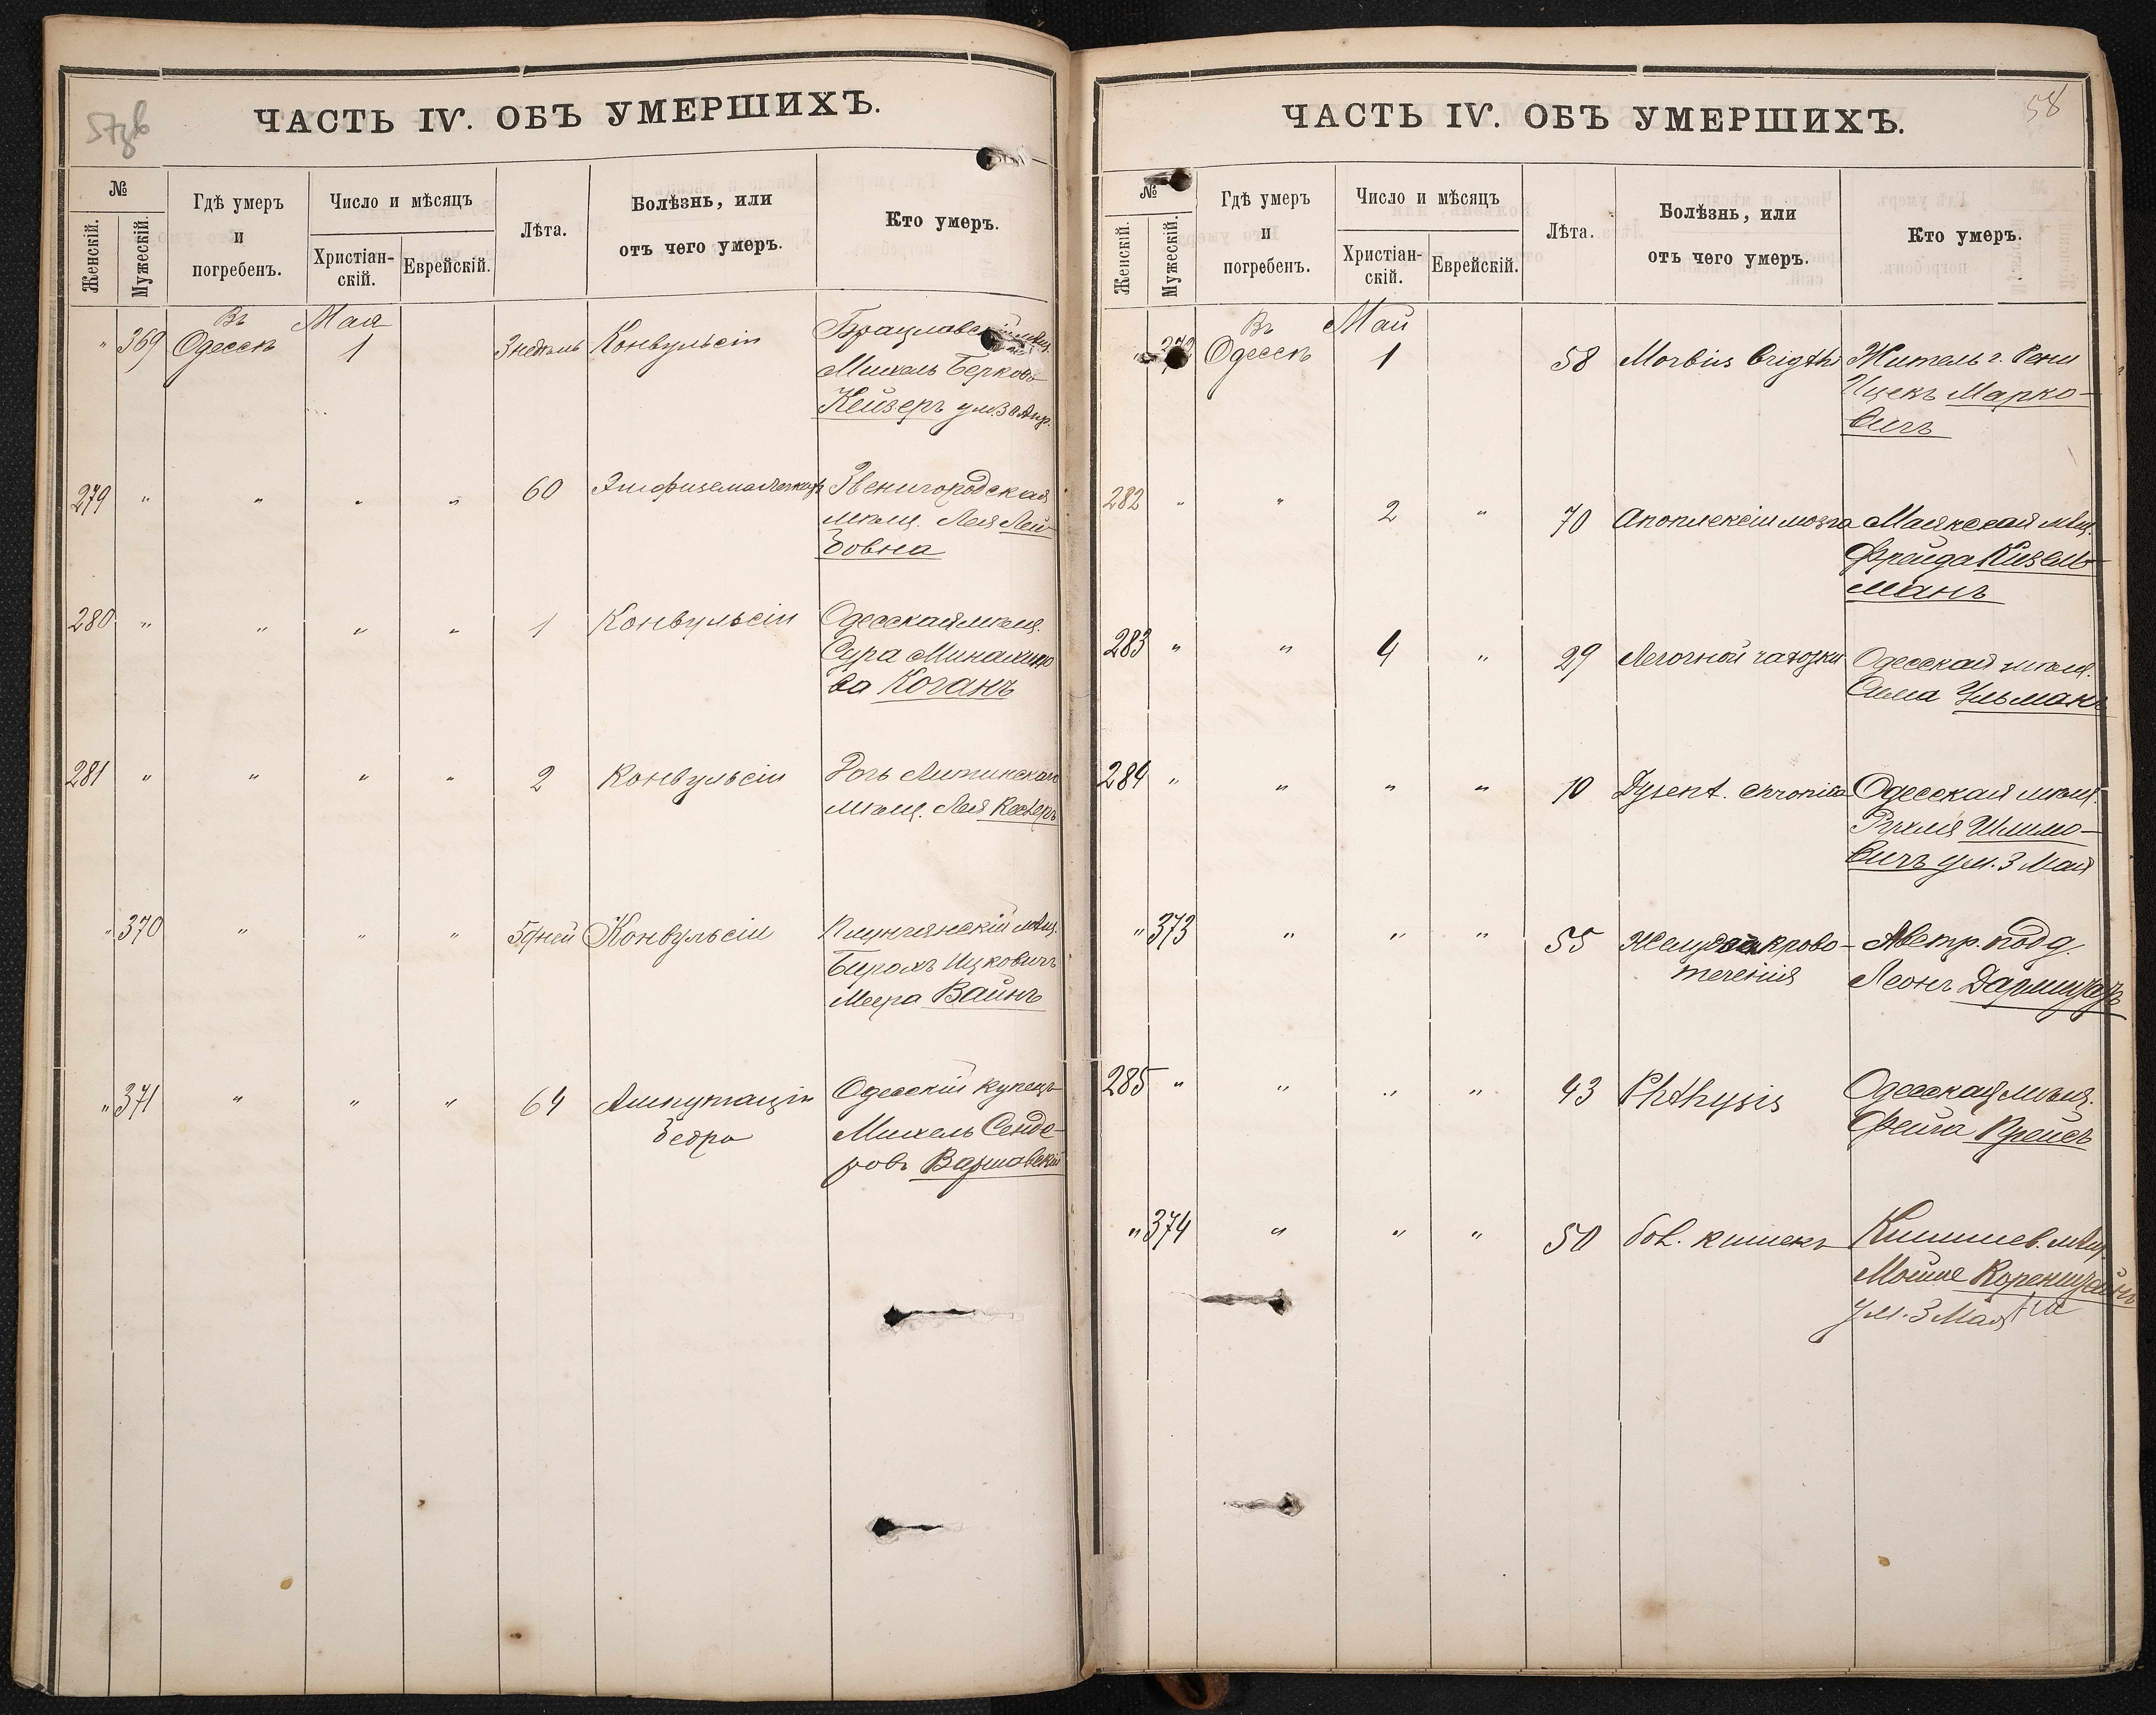 57зв
ЧАСТЬ IV. ОБЪ УМЕРШИХЪ.
№
Женскій.
Мужескій.
Гдѣ умеръ
и
погребенъ.
Число и мѣсяцъ
Христіан-
скій.
Еврейскій.
Лѣта.
Болѣзнь, или
отъ чего умеръ.
Кто умеръ.
Въ Мая
" 369 Одессѣ 1 3 недѣль Конвульсіи
Михель Берковъ
Кейзеръ ум. 30 Апр.
279 " " " " 60 Эмфизема легкихъ Звенигородская
мѣщ. Лея Лей-
бовна
280 " " " " 1 Конвульсіи Одесская мѣщ.
Сура
ва Коганъ
281 " " " " 2 Конвульсіи Дочь Липинскаго
мѣщ. Лея
" 370 " " " 5 дней Конвульсіи мѣщ.
Ицковичъ
Меера Вайнъ
" 371 " " " 64 Ампутація Одесскій купецъ
бедра Михель Сенде-
ровъ Варшавскій
58
ЧАСТЬ IV. ОБЪ УМЕРШИХЪ.
№
Женскій.
Мужескій.
Гдѣ умеръ
и
погребенъ.
Число и мѣсяцъ
Христіан-
скій.
Еврейскій.
Лѣта.
Болѣзнь, или
отъ чего умеръ.
Кто умеръ.
Въ Май
" 372 Одессѣ 1 58 Morbus brigthi Житель г. Рени
Ицекъ Марко-
вичъ
282 " " 2 " 70 Апоплексіи мозга Маякская мѣщ.
Фрейда Кизель-
манъ
283 " " 4 " 29 Легочной чахотки Одесская мѣщ.
Сима Ульманъ
284 " " " " 10 Dysent. chronica Одесская мѣщ.
Рухля Шлимо-
вичъ ум. 3 Мая
" 373 " " " 55 крово- Австр. подд.
теченія Леонъ
285 " " " " 43 Phthysis Одесская мѣщ.
Фейга Крейсъ
" 374 " " " 50 бол. кишекъ Кишинев. мѣщ.
Мойше Коренштейнъ
ум. 3 Мая